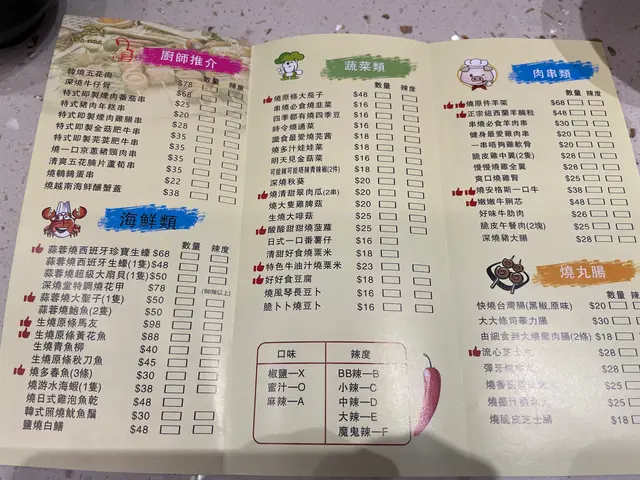 廚師推介
數量 辣度
韓燒五花肉 $78
深燒牛仔骨 $68
特式即製煙肉番茄串 $25
特式豬肉年糕串 $20
特式即製煙肉雞腸串 $28
特式即製金菇肥牛串 $35
特式即製芫荽肥牛串 $35
燒一口京蔥豬頸肉串 $35
清爽五花腩片蘆筍串 $35
燒鵪鶉蛋串 $22
燒越南海鮮釀蟹蓋 $38
海鮮類
數量 辣度
蒜蓉燒西班牙珍寶生蠔 $68
蒜蓉燒西班牙生蠔(1隻) $48
蒜蓉燒超級大扇貝(1隻) $50
深燒堂特調燒花甲 $78
蒜蓉燒大聖子(1隻) $50
蒜蓉燒鮑魚(2隻) $50
生燒原條馬友 $98
生燒原條黃花魚 $88
生燒青魚柳 $40
生燒原條秋刀魚 $45
燒多春魚(3條) $30
燒游水海蝦(1隻) $38
燒日式雞泡魚乾 $48
韓式照燒魷魚鬚 $30
鹽燒白鱔 $48
蔬菜類
數量 辣度
燒原條大茄子 $48
串燒必食燒韭菜 $16
四季都有燒四季豆 $16
時令燒通菜 $16
識食最愛燒芫茜 $16
燒多汁娃娃菜 $18
明天見金菇菜 $18
可能辣可能唔辣青辣椒(2件) $18
深燒秋葵 $20
燒清甜翠肉瓜(2串) $20
燒大隻雞脾菇 $20
生燒大啡菇 $25
酸酸甜甜燒菠蘿 $25
日式一口番薯仔 $16
清甜好食燒粟米 $18
特色牛油汁燒粟米 $23
好好食豆腐 $18
燒風琴長豆卜 $16
脆卜卜燒豆卜 $16
口味 辣度
椒鹽—X BB辣—B
蜜汁—O 小辣—C
麻辣—A 中辣—D
大辣—E
魔鬼辣—F
肉串類
數量 辣度
燒原件羊架 $68
正宗紐西蘭羊腩粒 $48
串燒必食羊肉串 $30
健身最愛雞肉串 $20
一串唔夠雞軟骨 $20
脆皮雞中翼(2隻) $28
慢慢燒雞全翼 $28
爽口燒雞腎 $25
燒安格斯一口牛 $38
嫩嫩牛脷芯 $48
好味牛肋肉 $26
脆皮午餐肉(2塊) $25
深燒豬大腸 $28
燒丸腸
數量
快燒台灣腸(黑椒,原味) $20
大大條司華力腸 $30
由細食到大燒雞肉腸(2條) $18
流心芝士丸 $28
$28
$25
$25
燒脆皮芝士腸 $18